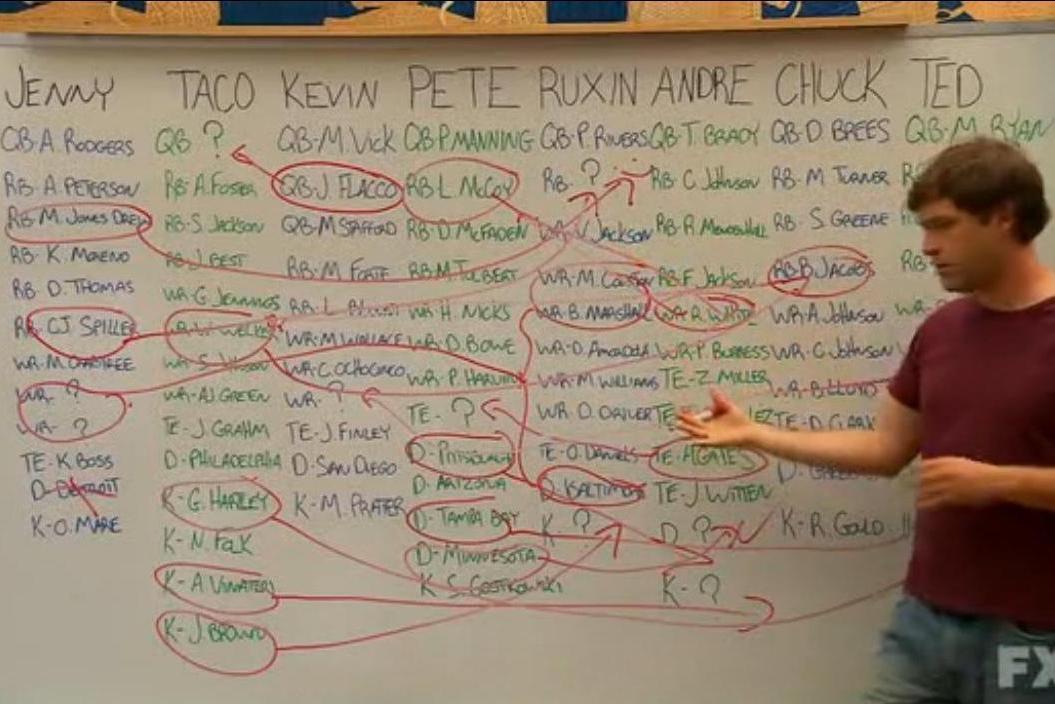 JENNY
QB-A. RODGERS
RB-A. PETERSON
RB-M. JONES DREW
RB-K. MORENO
RB-D. THOMAS
RB-CJ. SPILLER
WR-M. CRABTREE
WR-?
WR-?
TE-K. BOSS
D-DETROIT
K-O. MARE
TACO
QB ?
RB-A. FOSTER
RB-S. JACKSON
RB-J. BEST
WR-G. JENNINGS
WR-W. WELKER
WR-S.
WR-AJ. GREEN
TE-J. GRAHM
D-PHILADELPHIA
K-G. HARTLEY
K-N. FOLK
K-A. VINATERI
K-J. BROWN
KEVIN
QB-M. VICK
QB-J. FLACCO
QB-M STAFFORD
RB-M. FORTE
RB-L.
WR-M. WALLACE
WR-C. OCHOCINCO
WR-?
TE-J. FINLEY
D-SAN DIEGO
K-M. PRATER
PETE
QB P. MANNING
RB-L. MCCOY
RB-D. MCFADEN
RB M. TOLBERT
WR H. NICKS
WR-D. BOWE
WR-P. HARVIN
TE-?
D-PITTSBURGH
D-ARIZONA
D-TAMPA BAY
D-MINNESOTA
K S. GOSTKOWSKI
RUXIN
QB-P. RIVERS
RB-?
WR-V. JACKSON
WR-M. COLSTON
WR-B. MARSHALL
WR-D. AMENDOLA
WR-M. WILLIAMS
WR D. DRIVER
TE-O. DANIELS
D-BALTIMORE
K ?
ANDRE
QB-T. BRADY
RB-C. JOHNSON
RB-R. MENDENHALL
RB-F. JACKSON
WR-R. WHITE
WR-P BURRESS
TE-Z. MILLER
TE-
TE-A. GATES
TE-J. WITTEN
D ?
K-?
CHUCK
QB-D BREES
RB-M TURNER
RB-S. GREENE
RB-B. JACOBS
WR-A. JOHNSON
WR-C. JOHNSON
WR-B. LLOYD
TE-D. CLARK
D-
K-R. GOULD
TED
QB-M. RYAN
RB
RB
WR-
FX